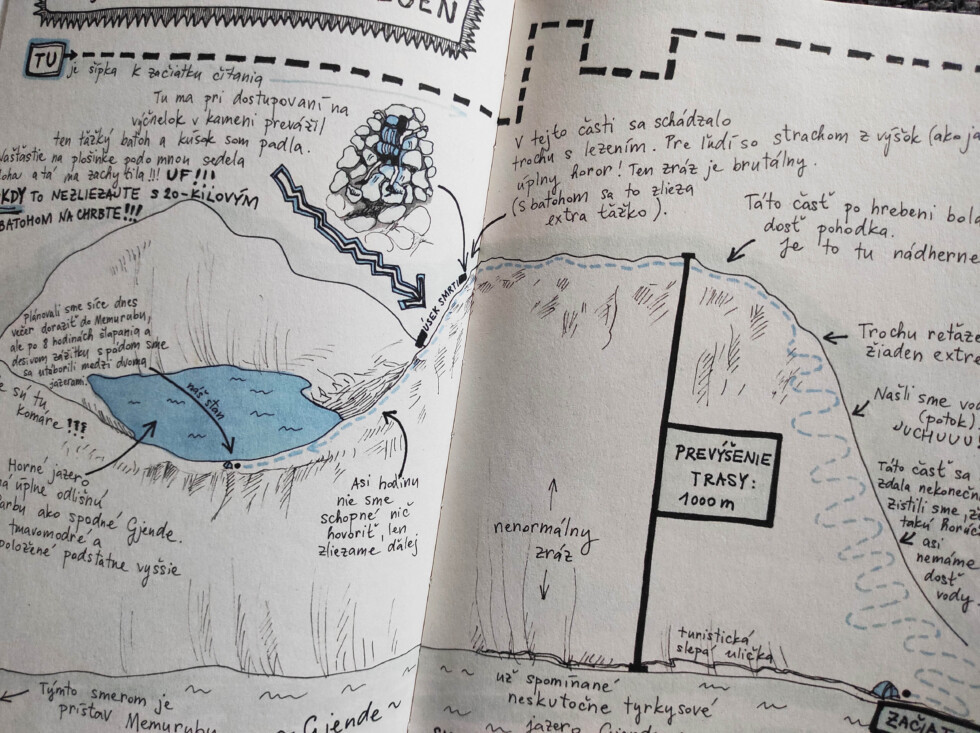 TU
je šípka k začiatku čítania
Tu ma pri dostupovaní na
výčnelok v kameni prevážil
ten ťažký baťoh a kúsok som padla.
Našťastie na plošinke podo mnou sedela
a tá ma zachytila!!! UF!!!
TO NEZLIEZAJTE S 20-KILOVÝM
BATOHOM NA CHRBTE!!!
V tejto časti sa schádzalo
trochu s lezením. Pre ľudí so strachom z výšok (ako ja)
úplný horor! Ten zráz je brutálny.
(s batohom sa to zlieza
extra ťažko).
Táto časť po hrebeni bola
dosť pohodka.
Je to tu nádherne
ÚSEK SMRTI
Plánovali sme síce dnes
večer doraziť do Memurubu,
ale po 8 hodinách šlapania a
desivom zážitku s pádom sme
sa utáborili medzi dvoma
jazerami.
náš stan
sú tu
komáre!!!
Horné jazero
má úplne odlišnú
farbu ako spodné Gjende.
tmavomodré a
položené podstatne vyššie
Asi hodinu
nie sme
schopné nič
hovoriť, len
zliezame ďalej
nenormálny
zráz
PREVÝŠENIE
TRASY:
1000 m
Trochu reťaze
žiaden
Našli sme
(potok)!
JUCHUUU!
Táto časť sa
zdala
zistili sme, že
takú
asi
nemáme
dosť
vody.
turistická
slepá ulička
Týmto smerom je
prístav Memurubu
Gjende
už spomínané
neskutočne tyrkysové
jazero Gjende